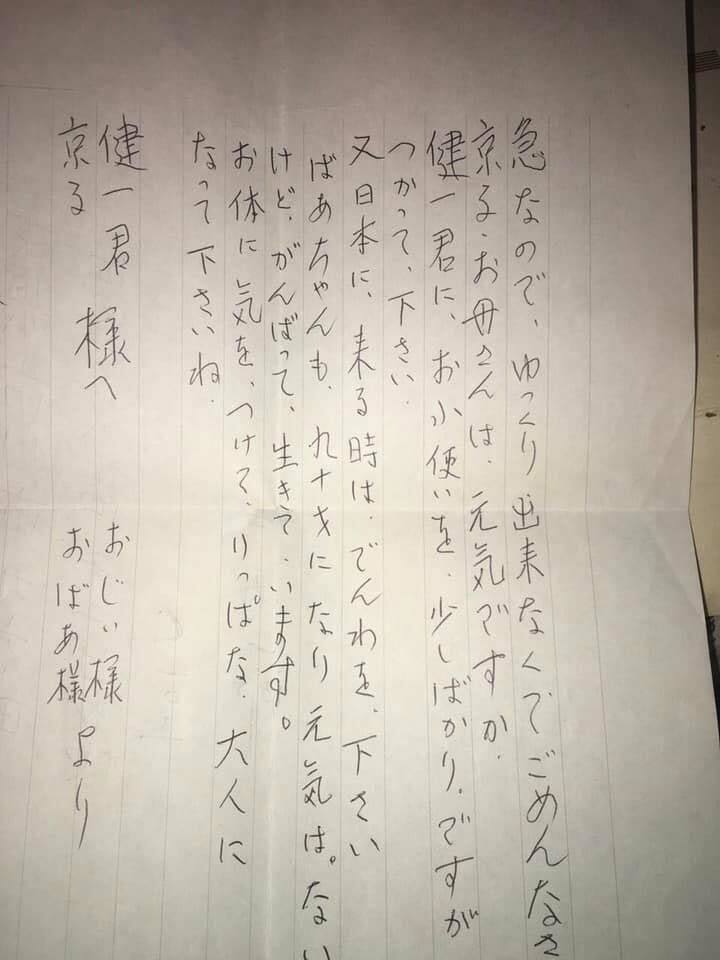 急なので、ゆっくり出来なくでごめんなさ
京る・お母さんは、元気ですか.
健一君に、お小使いを、少しばかり.ですが
つかって、下さい.
又日本に、来る時は、でんわを、下さい
ばあちゃんも、九十才になり元気は。ない
けど、がんばって、生きて、います。
お体に気を、つけて、りっぱな、大人に
なって下さいね.
健一君 様へ
京る
おじい様
おばあ様 より